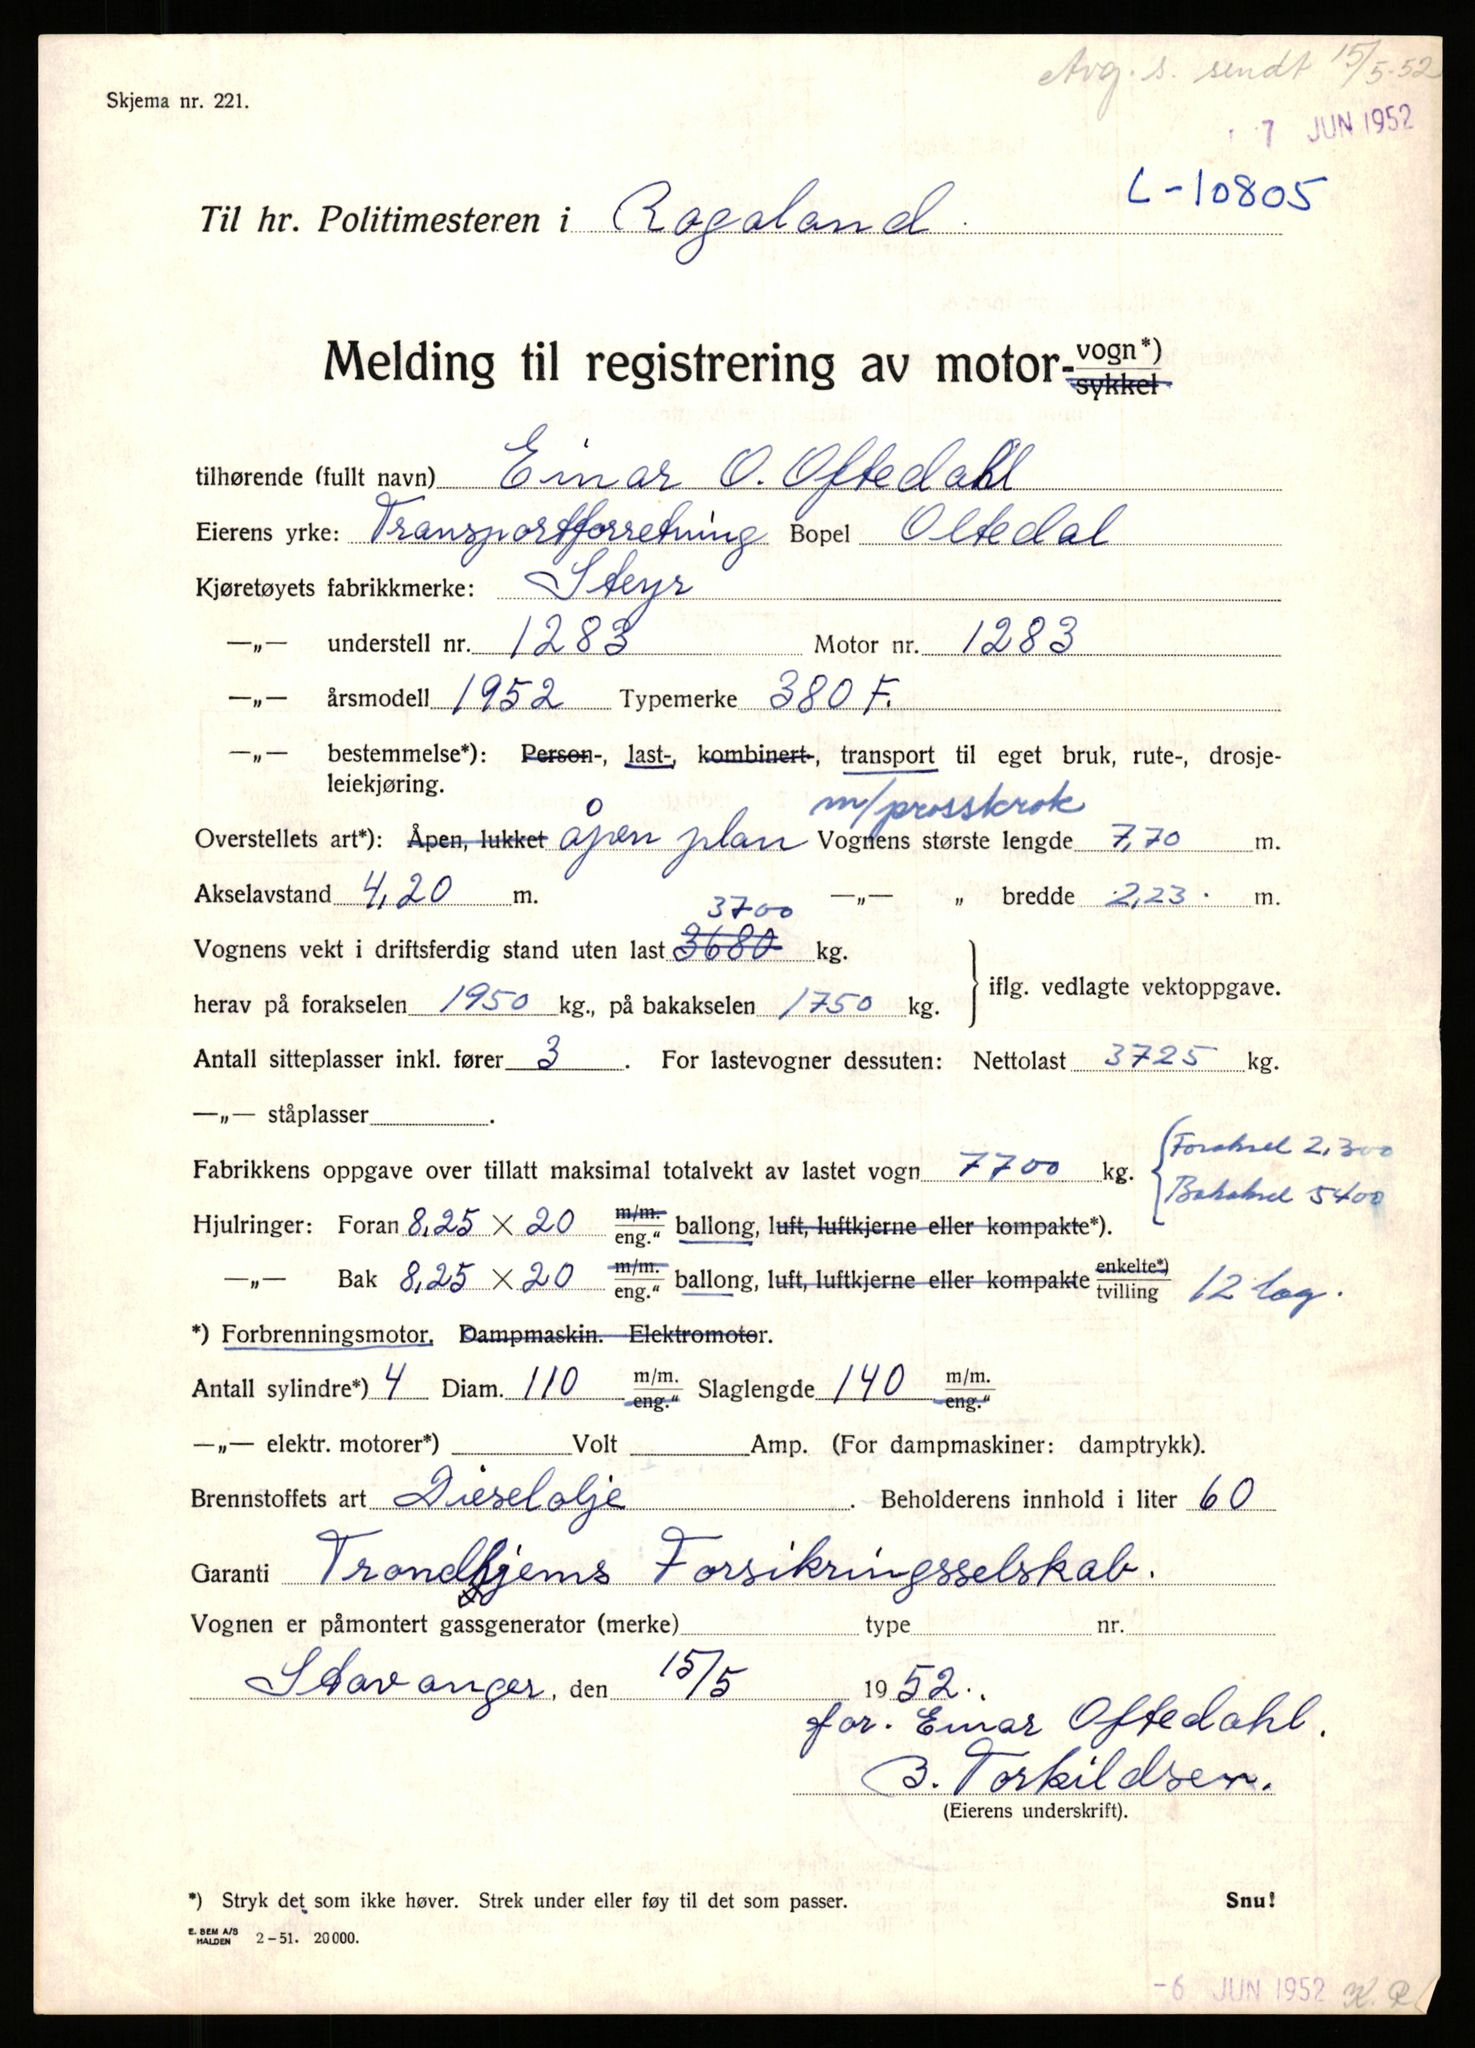 Avg. s. sendt 15/5-52
Skjema nr. 221.
7 JUN 1952
L-10805
Til hr. Politimesteren i Rogaland.
Melding til registrering av motor- vogn*) sykkel
tilhørende (fullt navn) Einar O. Oftedahl
Eierens yrke: Transportforretning Bopel Oltedal
Kjøretøyets fabrikkmerke: Steyr
—„— understell nr. 1283 Motor nr. 1283
—„— årsmodell 1952 Typemerke 380 F.
—„— bestemmelse*): Person-, last-, kombinert-, transport til eget bruk, rute-, drosje-
leiekjøring.
m/prosskrok
Overstellets art*): Åpen, lukket åpen plan Vognens største lengde 7,70 m.
Akselavstand 4,20 m. —„— „ bredde 2,23 m.
3700
Vognens vekt i driftsferdig stand uten last 3680 kg.
iflg. vedlagte vektoppgave.
herav på forakselen 1950 kg., på bakakselen 1750 kg.
Antall sitteplasser inkl. fører 3. For lastevogner dessuten: Nettolast 3725 kg.
—„— ståplasser .
Fabrikkens oppgave over tillatt maksimal totalvekt av lastet vogn 7700 kg. Foraksel 2,300
Bakaksel 5400
Hjulringer: Foran 8,25 × 20 m/m. eng.“ ballong, luft, luftkjerne eller kompakte*).
—„— Bak 8,25 × 20 m/m. eng.“ ballong, luft, luftkjerne eller kompakte enkelte*) tvilling 12 lag.
*) Forbrenningsmotor. Dampmaskin. Elektromotor.
Antall sylindre*) 4 Diam. 110 m/m. eng.“ Slaglengde 140 m/m. eng.“
—„— elektr. motorer*) Volt Amp. (For dampmaskiner: damptrykk).
Brennstoffets art Dieselolje. Beholderens innhold i liter 60
Garanti Trondhjems Forsikringsselskab.
Vognen er påmontert gassgenerator (merke) type nr.
Stavanger, den 15/5 1952.
for. Einar Oftedahl.
B. Torkildsen.
(Eierens underskrift).
*) Stryk det som ikke høver. Strek under eller føy til det som passer. Snu!
E. SEM A/S HALDEN 2-51. 20000.
-6 JUN 1952 K. R.